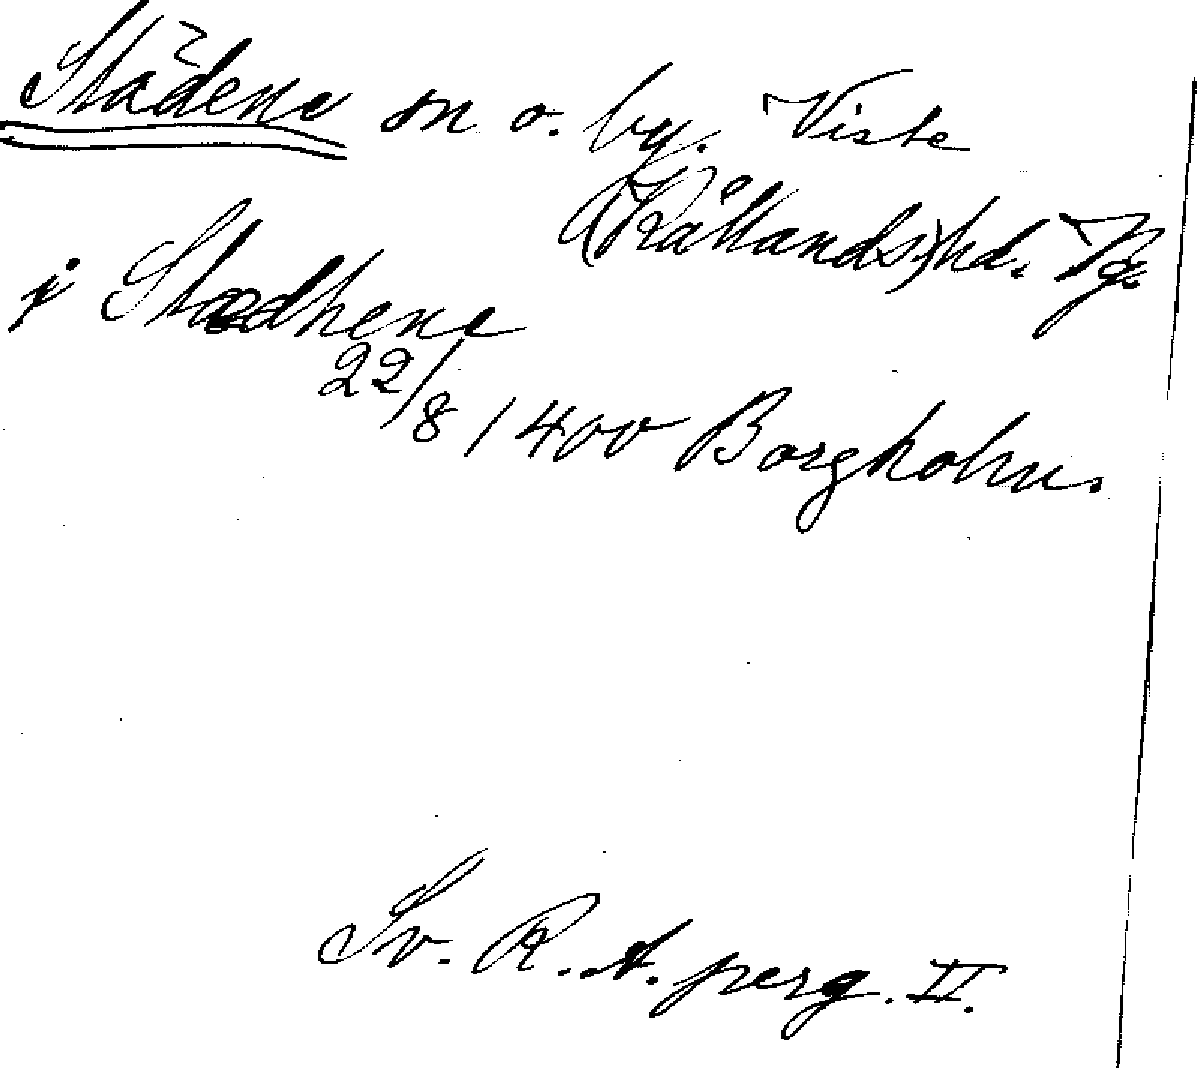 Städene sn o. by. Viste
(Kållands) hd. Vg.
j Stædhene
22/8 1400 Borgholm.
Sv. R. A. perg. II.